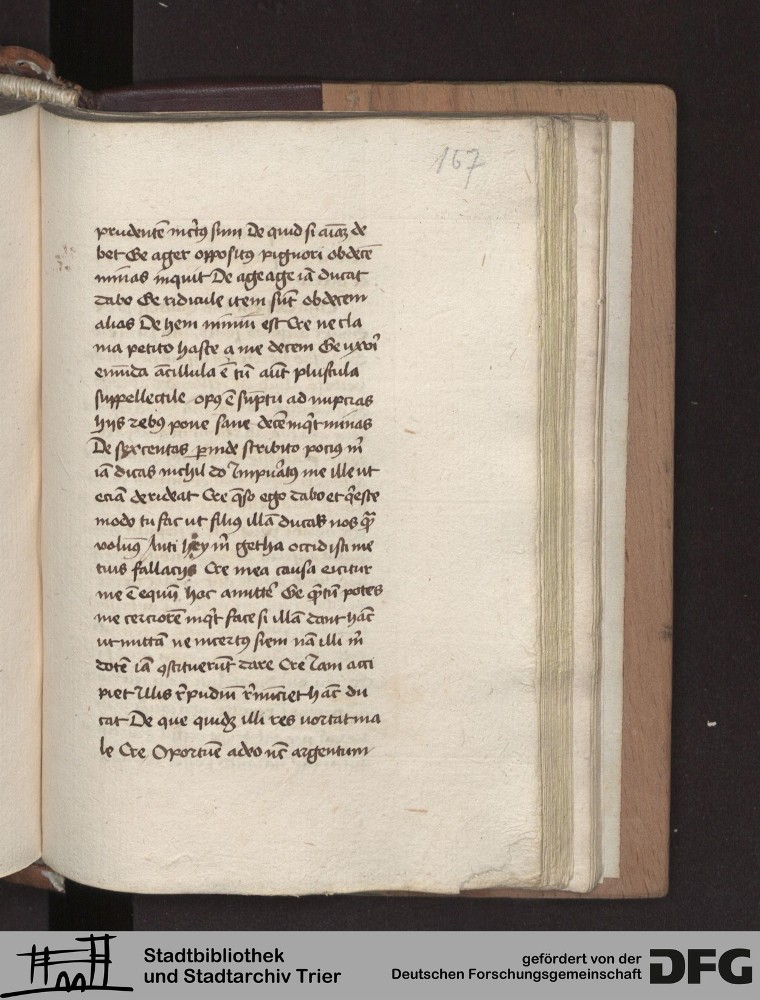 167
prudentē nict9 sum De quid si aīaʒ de
bet Ge ager opposit9 pignori ob decē
minas inquit De age age iā ducat
dabo Ge ridicule item sūt ob decem
alias De hem nimiū est Cre ne cla
ma petito hasce a me decem Ge uxori
emūda ācillula ē tū aūt pluscula
suppellectile op9 ē sūptu ad nupcias
hijs reb9 pone sane decē inqͥt minas
De sexcentas ꝑinde scribito poci9 m̄
iā dicas nichil do Inpurat9 me ille ut
eciā derideat Cre q̄so ego dabo et q̄esce
modo tu fac ut fili9 illā ducat nos quā
volum9 Anti hey m̄ getha occidisti me
tuis fallacijs Cre mea causa eicitur
me ē equū hoc amitte Ge qͣntū potes
me cerciorē inqͥt face si illā dant hāc
ut mittā ne incert9 siem nā illi m̄
dotē iā ꝯstituerūt dare Cre Iam acci
piet Illis r̄pudiū r̄nūciet hāc du
cat De que quidē illi res uortat ma
le Cre Oportūe adeo nūc argentum
Stadtbibliothek
und Stadtarchiv Trier
gefördert von der
Deutschen Forschungsgemeinschaft
DFG